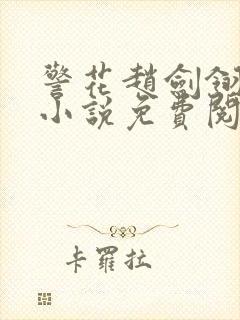 警花趙劍翎
小說免費閱
卡羅拉